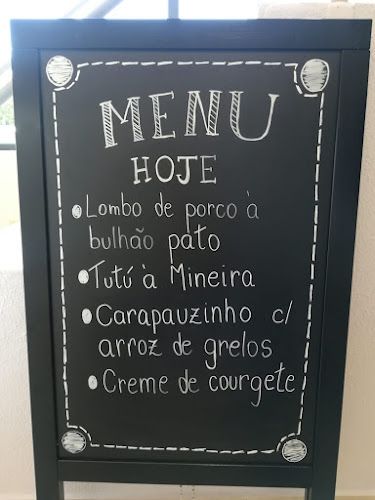 MENU
HOJE
• Lombo de porco à
bulhão pato
• Tutú à Mineira
• Carapauzinho c/
arroz de grelos
• Creme de courgete